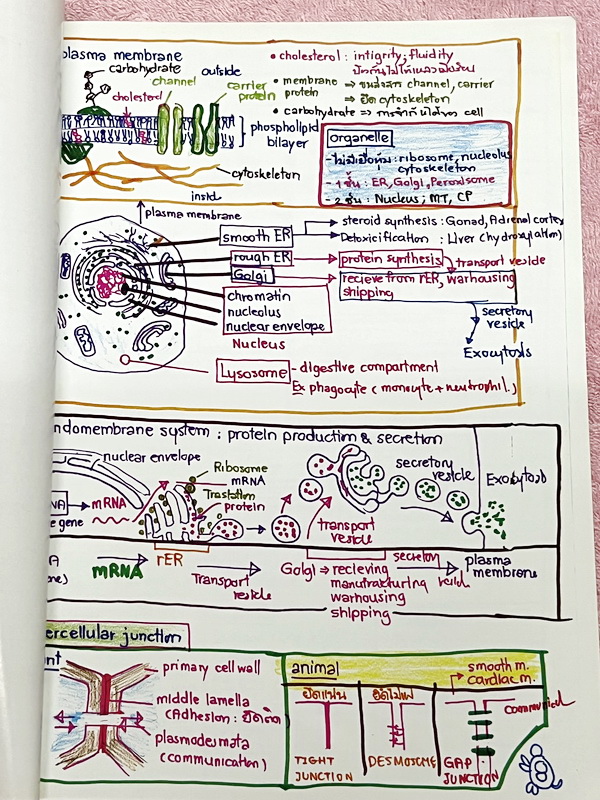 plasma membrane
carbohydrate
channel
outside
cholesterol
carrier
protein
phospholipid
bilayer
cytoskeleton
inside
• cholesterol : intigrity, fluidity
• membrane protein ⇒ ขนส่งสาร channel, carrier
⇒ ยึด cytoskeleton
• carbohydrate ⇒
cell
organelle
- ไม่มีเยื่อหุ้ม : ribosome, nucleolus
cytoskeleton
- 1 ชั้น : ER, Golgi, Peroxisome
- 2 ชั้น : Nucleus, MT, CP
plasma membrane
smooth ER
steroid synthesis : Gonad, Adrenal cortex
Detoxicification : Liver (hydroxylation)
rough ER
protein synthesis
transport vesicle
Golgi
recieve from rER, warhousing
shipping
chromatin
nucleolus
nuclear envelope
Nucleus
secretory
vesicle
Exocytosis
Lysosome - digestive compartment
Ex phagocyte (monocyte + neutrophil.)
ndomembrane system : protein production & secretion
nuclear envelope
Ribosome
mRNA
protein
mRNA
gene
secretory
vesicle
Exocytosis
transport
vesicle
mRNA
rER
Transport
vesicle
Golgi ⇒ recieving
warhousing
shipping
plasma
membrane
ercellular junction
primary cell wall
middle lamella
(Adhesion :
plasmodesmata
(communication)
animal
smooth m.
cardiac m.
ยึดแน่น
TIGHT
JUNCTION
DESMOSOME
GAP
JUNCTION